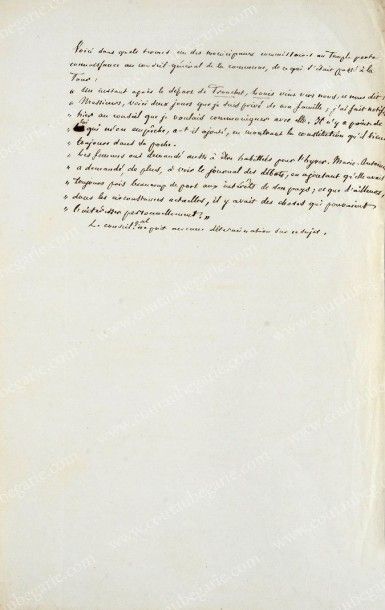 Voici dans quels termes un des municipaux commissaires au Temple porta
connaissance au conseil général de la commune, de ce qui s'était passé à la
Tour :
" un instant après le départ de Tronchet, Louis vint vers nous, et nous dit :
" Messieurs, voici deux jours que je suis privé de ma famille, j'ai fait notifier
" hier au conseil que je voulais communiquer avec elle. Il n'y a point de
" loi qui m'en empêche, a-t-il ajouté, en montrant la constitution qu'il tient
" toujours dans sa poche.
" Les femmes ont demandé aussi à être habillées pour l'hyver. Marie-Antoinette
" a demandé, de plus, à voir le journal des débats, en ajoutant qu'elle avait
" toujours pris beaucoup de part aux intérêts de son pays, et que d'ailleurs,
" dans les circonstances actuelles, il y avait des choses qui pouvaient
" l'intéresser personnellement. "
Le conseil gal ne prit aucune détermination sur ce sujet.
www.coutaubegarie.com